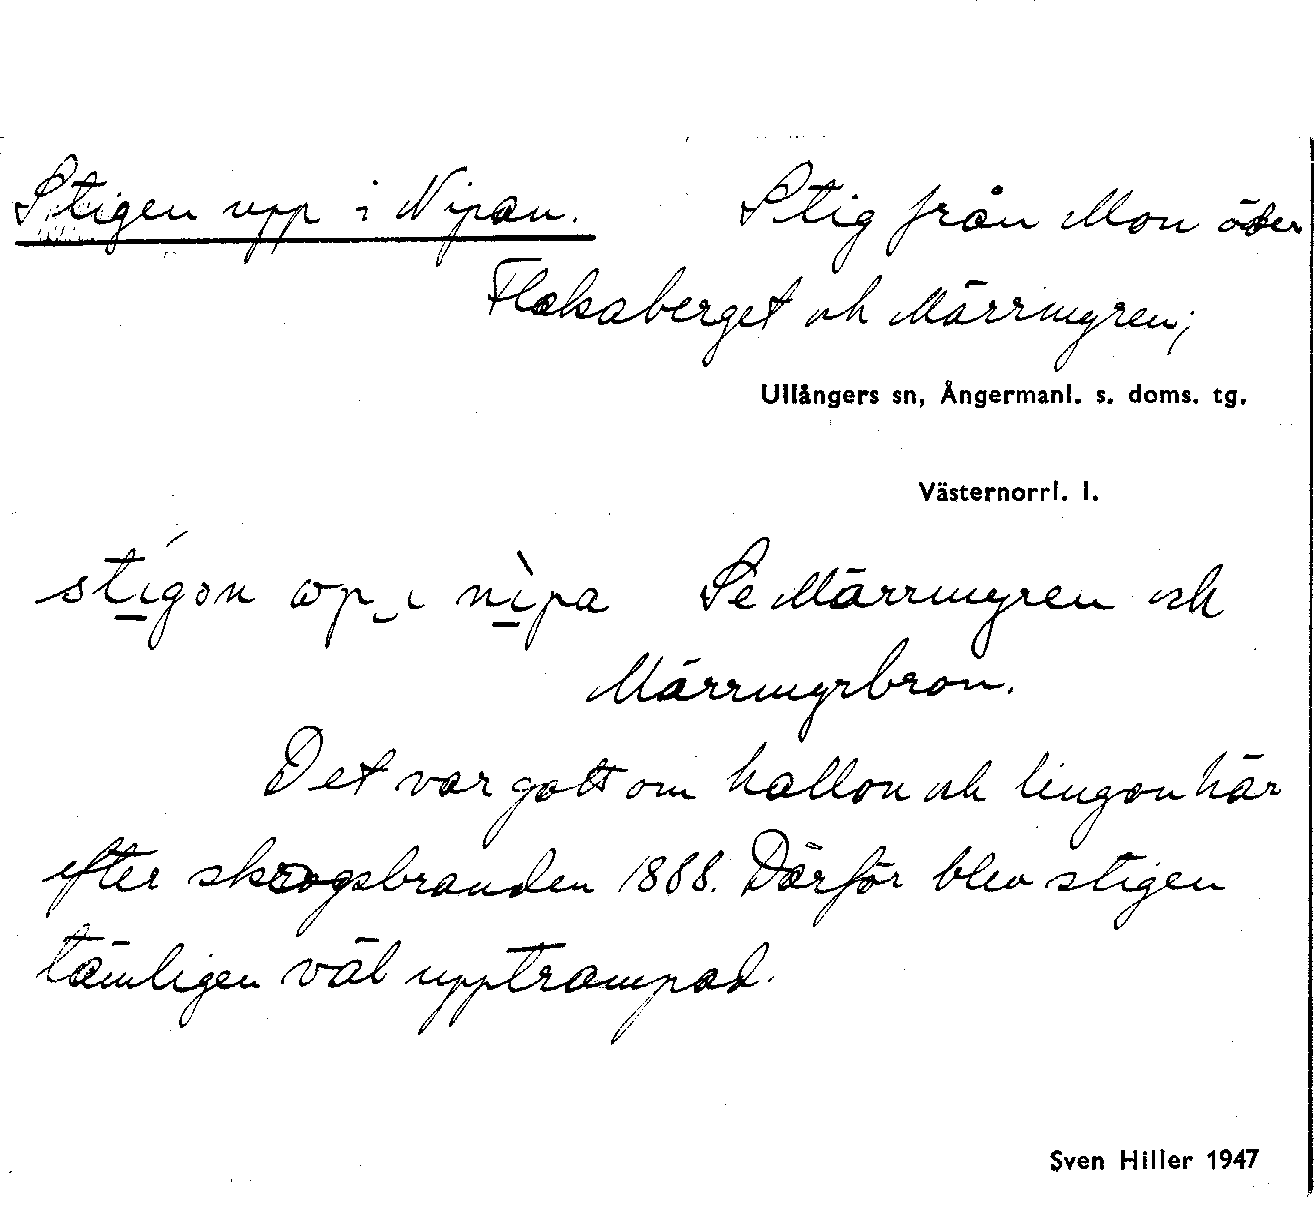 Stigen upp i Nipan. Stig från Mon över
Flakaberget och Märrmyren;
Ullångers sn, Ångermanl. s. doms. tg.
Västernorrl. l.
stígon op i nìpa Se Märrmyren och
Märrmyrbron.
Det var gott om hallon och lingon här
efter skogsbranden 1888. Därför blev stigen
tämligen väl upptrampad.
Sven Hiller 1947